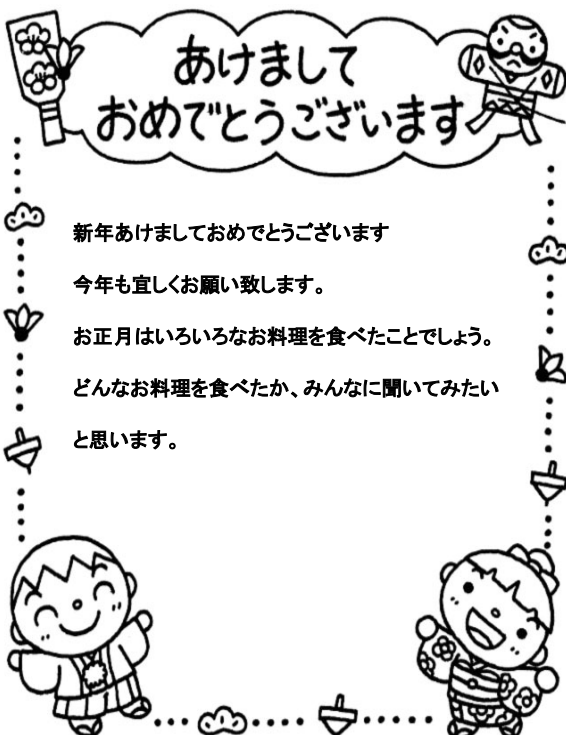 あけまして
おめでとうございます
新年あけましておめでとうございます
今年も宜しくお願い致します。
お正月はいろいろなお料理を食べたことでしょう。
どんなお料理を食べたか、みんなに聞いてみたい
と思います。